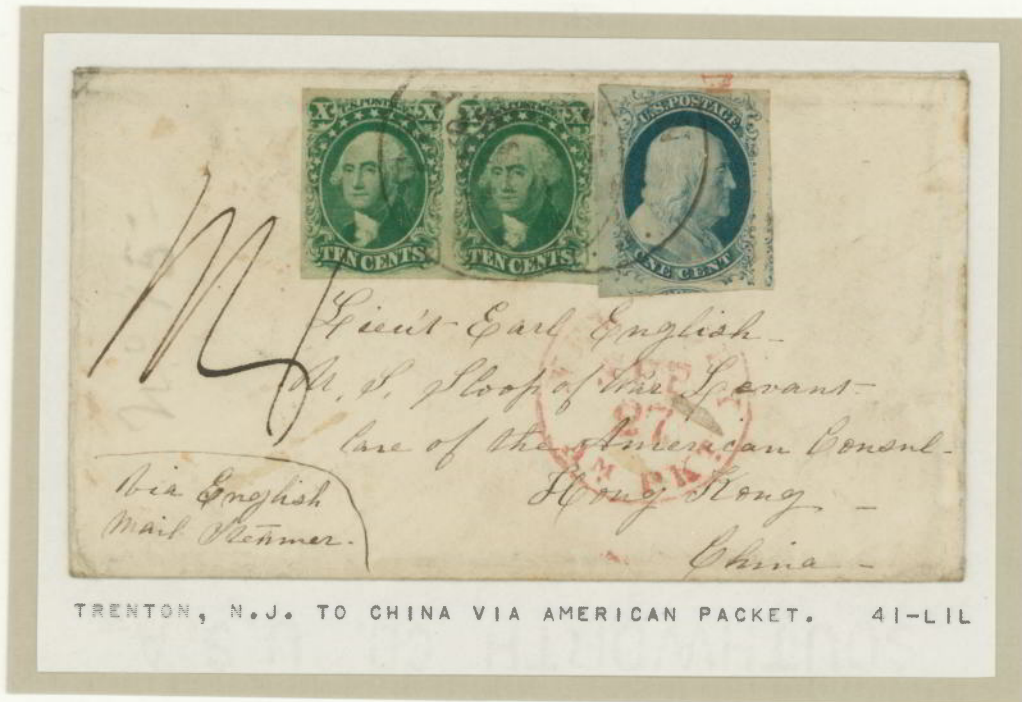 X U.S. POSTAGE X
TEN CENTS
X U.S. POSTAGE X
TEN CENTS
U.S. POSTAGE
ONE CENT
Lieu't Earl English
U. S. Sloop of War Levant
Care of the American Consul
Hong Kong
China
Via English
Mail Steamer.
SEP
27
AM PKT.
TRENTON, N.J. TO CHINA VIA AMERICAN PACKET. 41-L1L